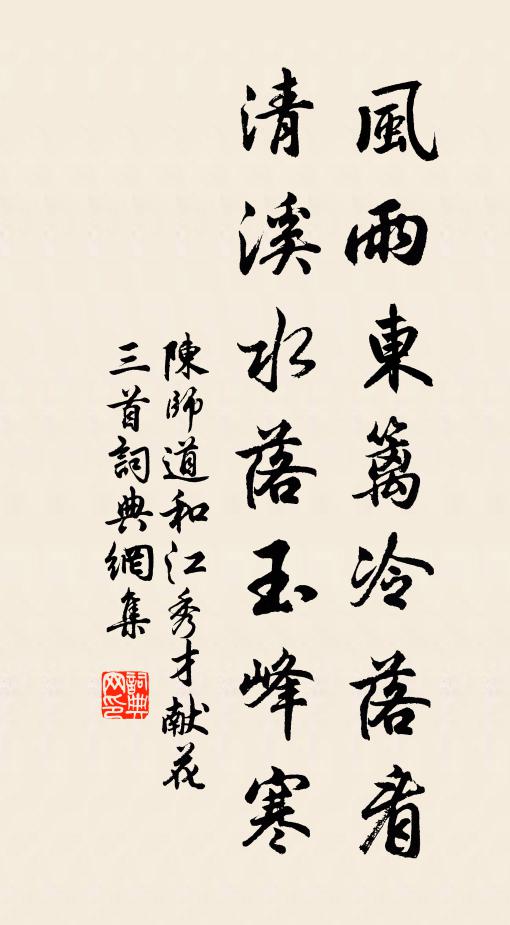 風雨東籬冷落看
清溪水落玉峰寒
陳師道和江秀才献花
三首詞典網集
詞典网印